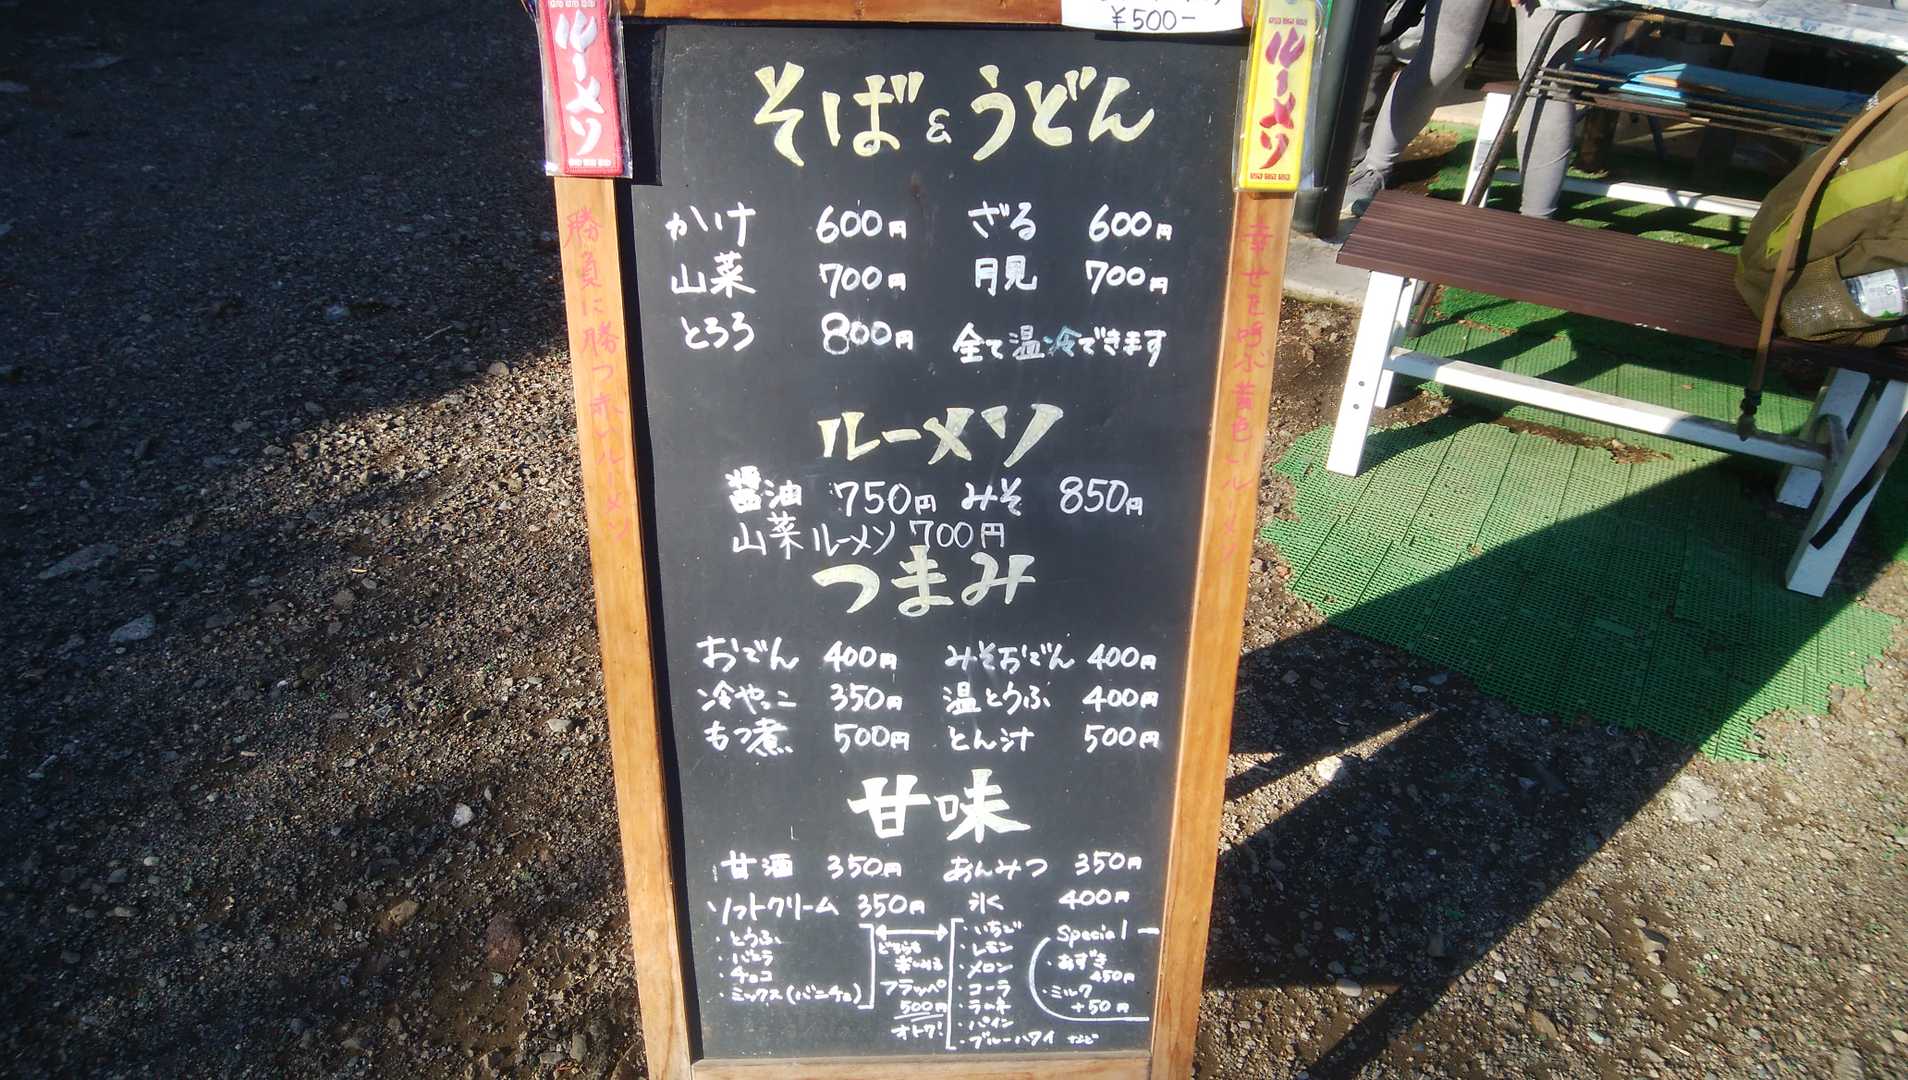 ¥500-
ルーメソ
ルーメソ
そば&うどん
かけ 600円 ざる 600円
山菜 700円 月見 700円
とろろ 800円 全て温冷できます
ルーメソ
醤油 750円 みそ 850円
山菜ルーメソ700円
つまみ
おでん 400円 みそおでん 400円
冷やっこ 350円 温とうふ 400円
もつ煮 500円 とん汁 500円
甘味
甘酒 350円 あんみつ 350円
ソフトクリーム 350円 氷 400円
・とうふ
・バニラ
・チョコ
・ミックス(バニチョ)
どちらも
楽しめる
フラッペ
500円
オトク!
・いちご
・レモン
・メロン
・コーラ
・ラムネ
・パイン
・ブルーハワイ など
Special
・あずき
450円
・ミルク
+50円
勝負に勝つ赤いルーメソ
幸せを呼ぶ黄色いルーメソ